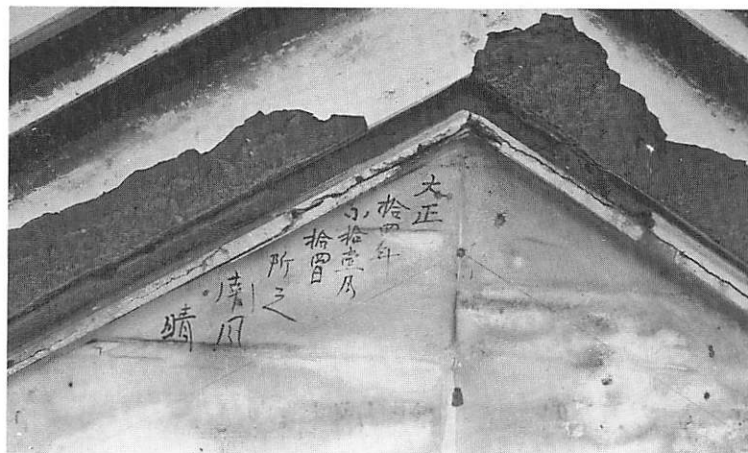 大正
拾四年
小拾壹月
拾四日
所之
南風
晴